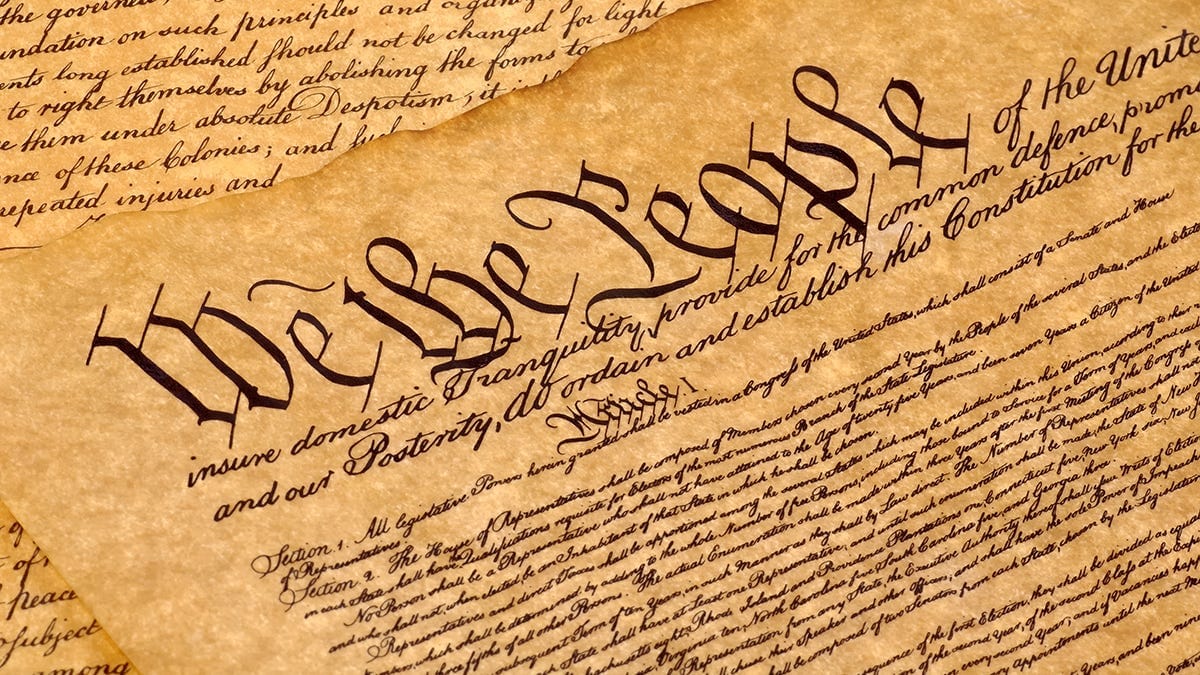 the governed,
undation on such principles and organiz
ents long established should not be changed for light
to right themselves by abolishing the forms to
e them under absolute Despotism, it is the
nce of these Colonies; and such
repeated injuries and
We the People of the Unite
insure domestic Tranquility, provide for the common defence, promo
and our Posterity, do ordain and establish this Constitution for the
Article I.
Section. 1. All legislative Powers herein granted shall be vested in a Congress of the United States, which shall consist of a Senate and House
of Representatives.
Section. 2. The House of Representatives shall be composed of Members chosen every second Year by the People of the several States, and the Elect
in each State shall have Qualifications requisite for Electors of the most numerous Branch of the State Legislature.
No Person shall be a Representative who shall not have attained to the Age of twenty five Years, and been seven Years a Citizen of the United
and who shall not, when elected, be an Inhabitant of that State in which he shall be chosen.
Representatives and direct Taxes shall be apportioned among the several States which may be included within this Union, according to their
Numbers, which shall be determined by adding to the whole Number of free Persons, including those bound to Service for a Term of Years, and
three fifths of all other Persons. The actual Enumeration shall be made within three Years after the first Meeting of the Congress of
subsequent Term of ten Years, in such Manner as they shall by Law direct. The Number of Representatives shall
State shall have at Least one Representative; and until such enumeration shall be made, the State of New
eight, Rhode Island and Providence Plantations one, Connecticut five, New York six, New
Virginia ten, North Carolina five, South Carolina five, and Georgia three.
Representation from any State, the Executive Authority thereof shall issue Writs of Elect
chuse their Speaker and other Officers; and shall have the sole Power of Impeach
shall be composed of two Senators from each State, chosen by the Legislatur
sequence of the first Election, they shall be divided as equal
of the second Year, of the second Class at the Exp
every second Year; and if Vacancies happ
Appointments until the next M
Years, and been nine
of
peace
subject
among